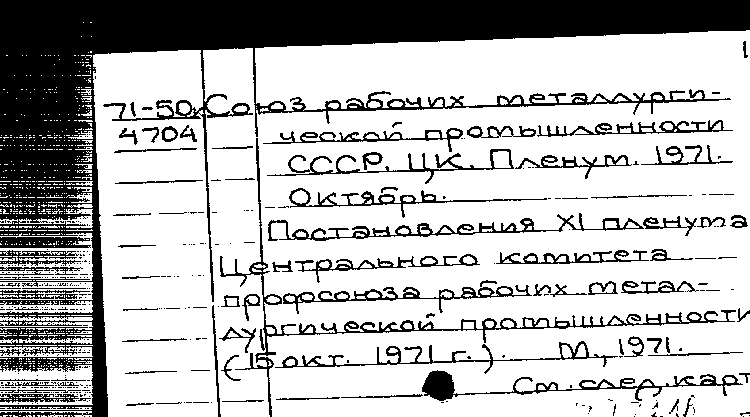 1
71-50к Союз рабочих металлурги-
4704 ческой промышленности
СССР. ЦК. Пленум. 1971.
Октябрь.
Постановления XI пленума
Центрального комитета
профсоюза рабочих метал-
лургической промышленности
(15 окт. 1971 г.). М., 1971.
См. след. карт